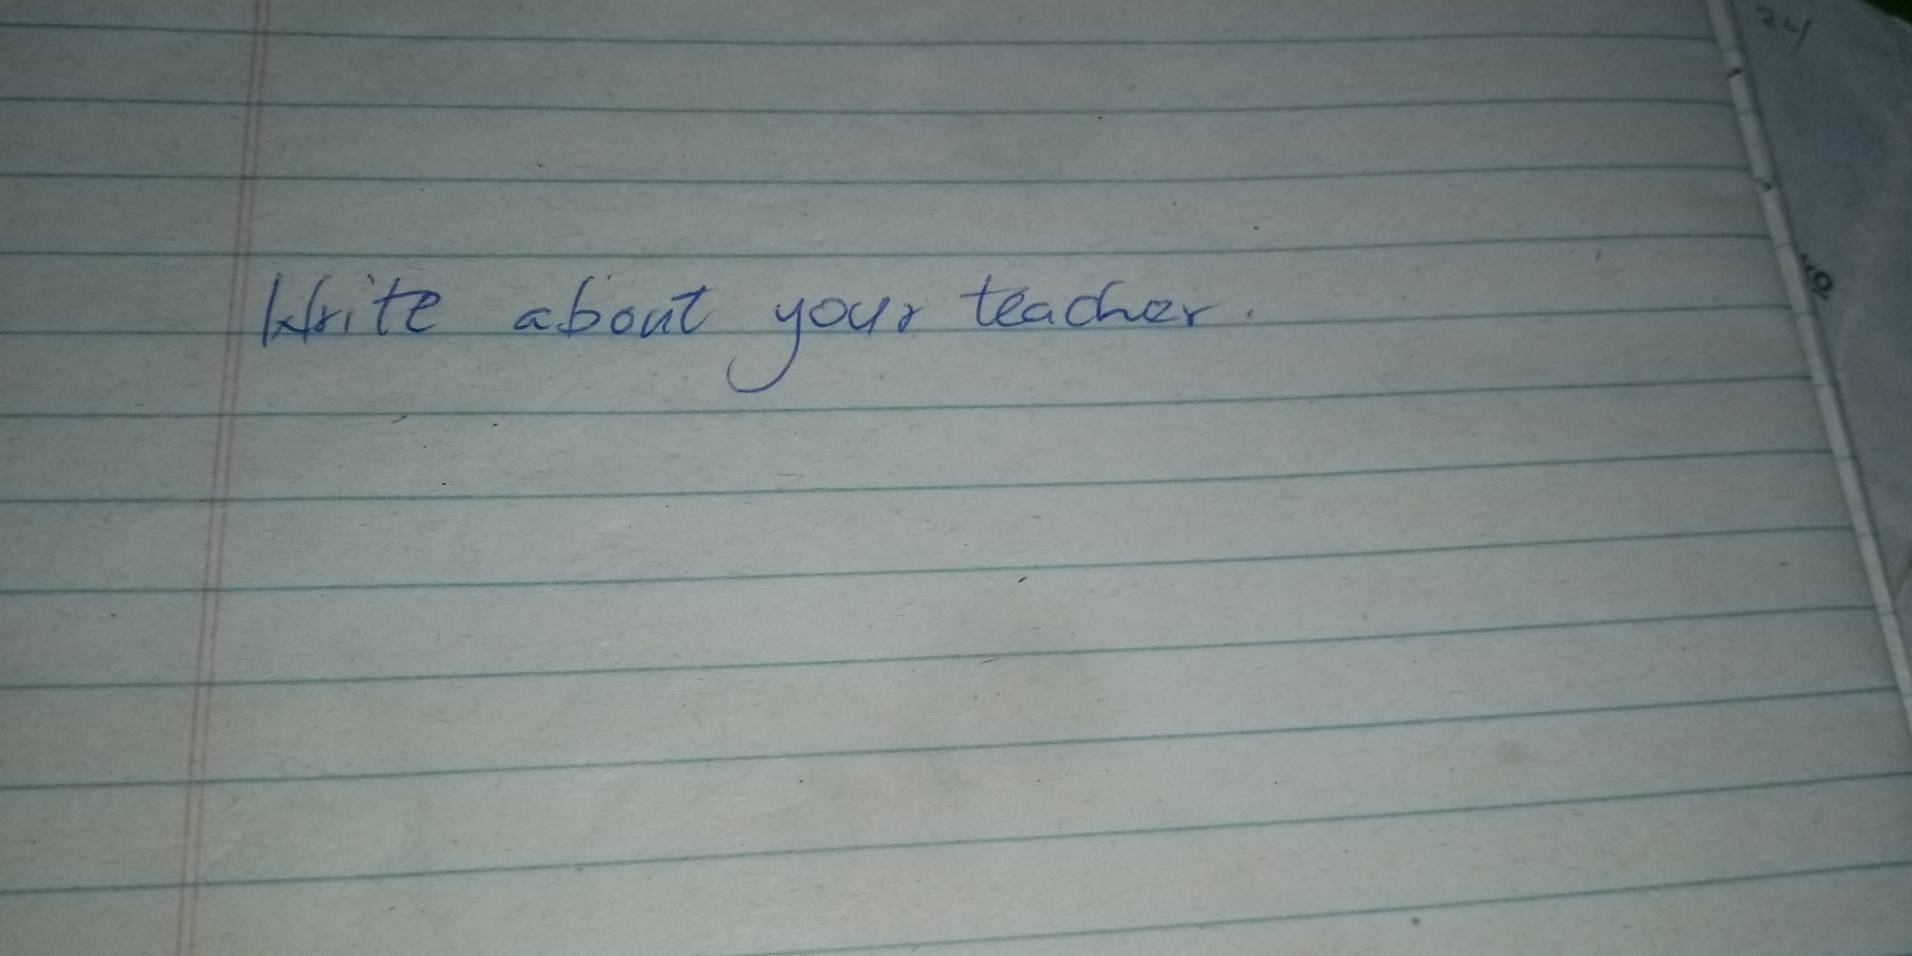 Write about your teacher.